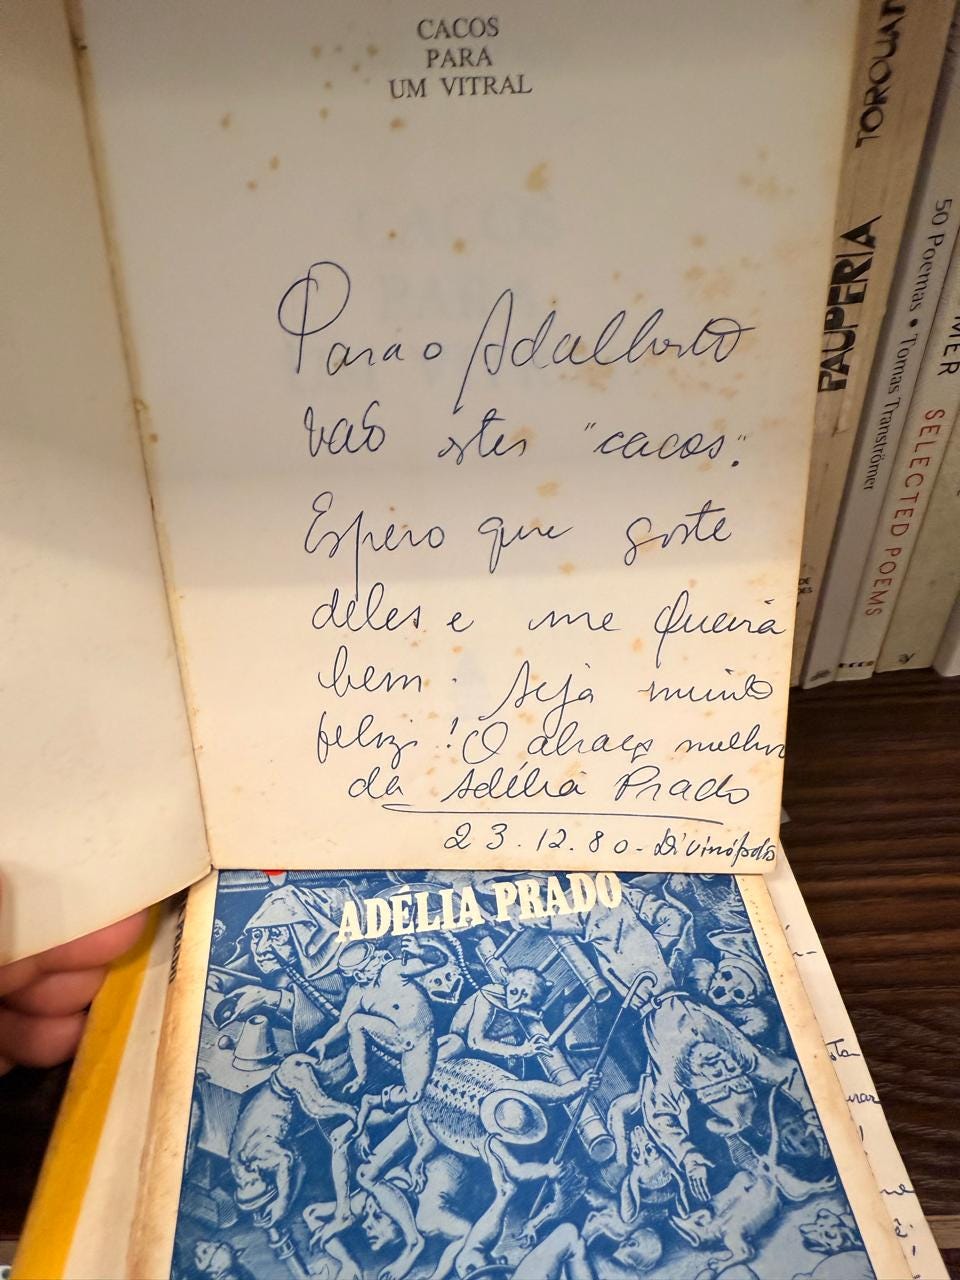 CACOS
PARA
UM VITRAL
Para o Adalberto
vão estes "cacos".
Espero que goste
deles e me queira
bem. Seja muito
feliz! O abraço melhor
da Adélia Prado
23.12.80 - Divinópolis
ADÉLIA PRADO
TORQUAT
PAUPERIA
50 Poemas • Tomas Tranströmer
MER
SELECTED POEMS